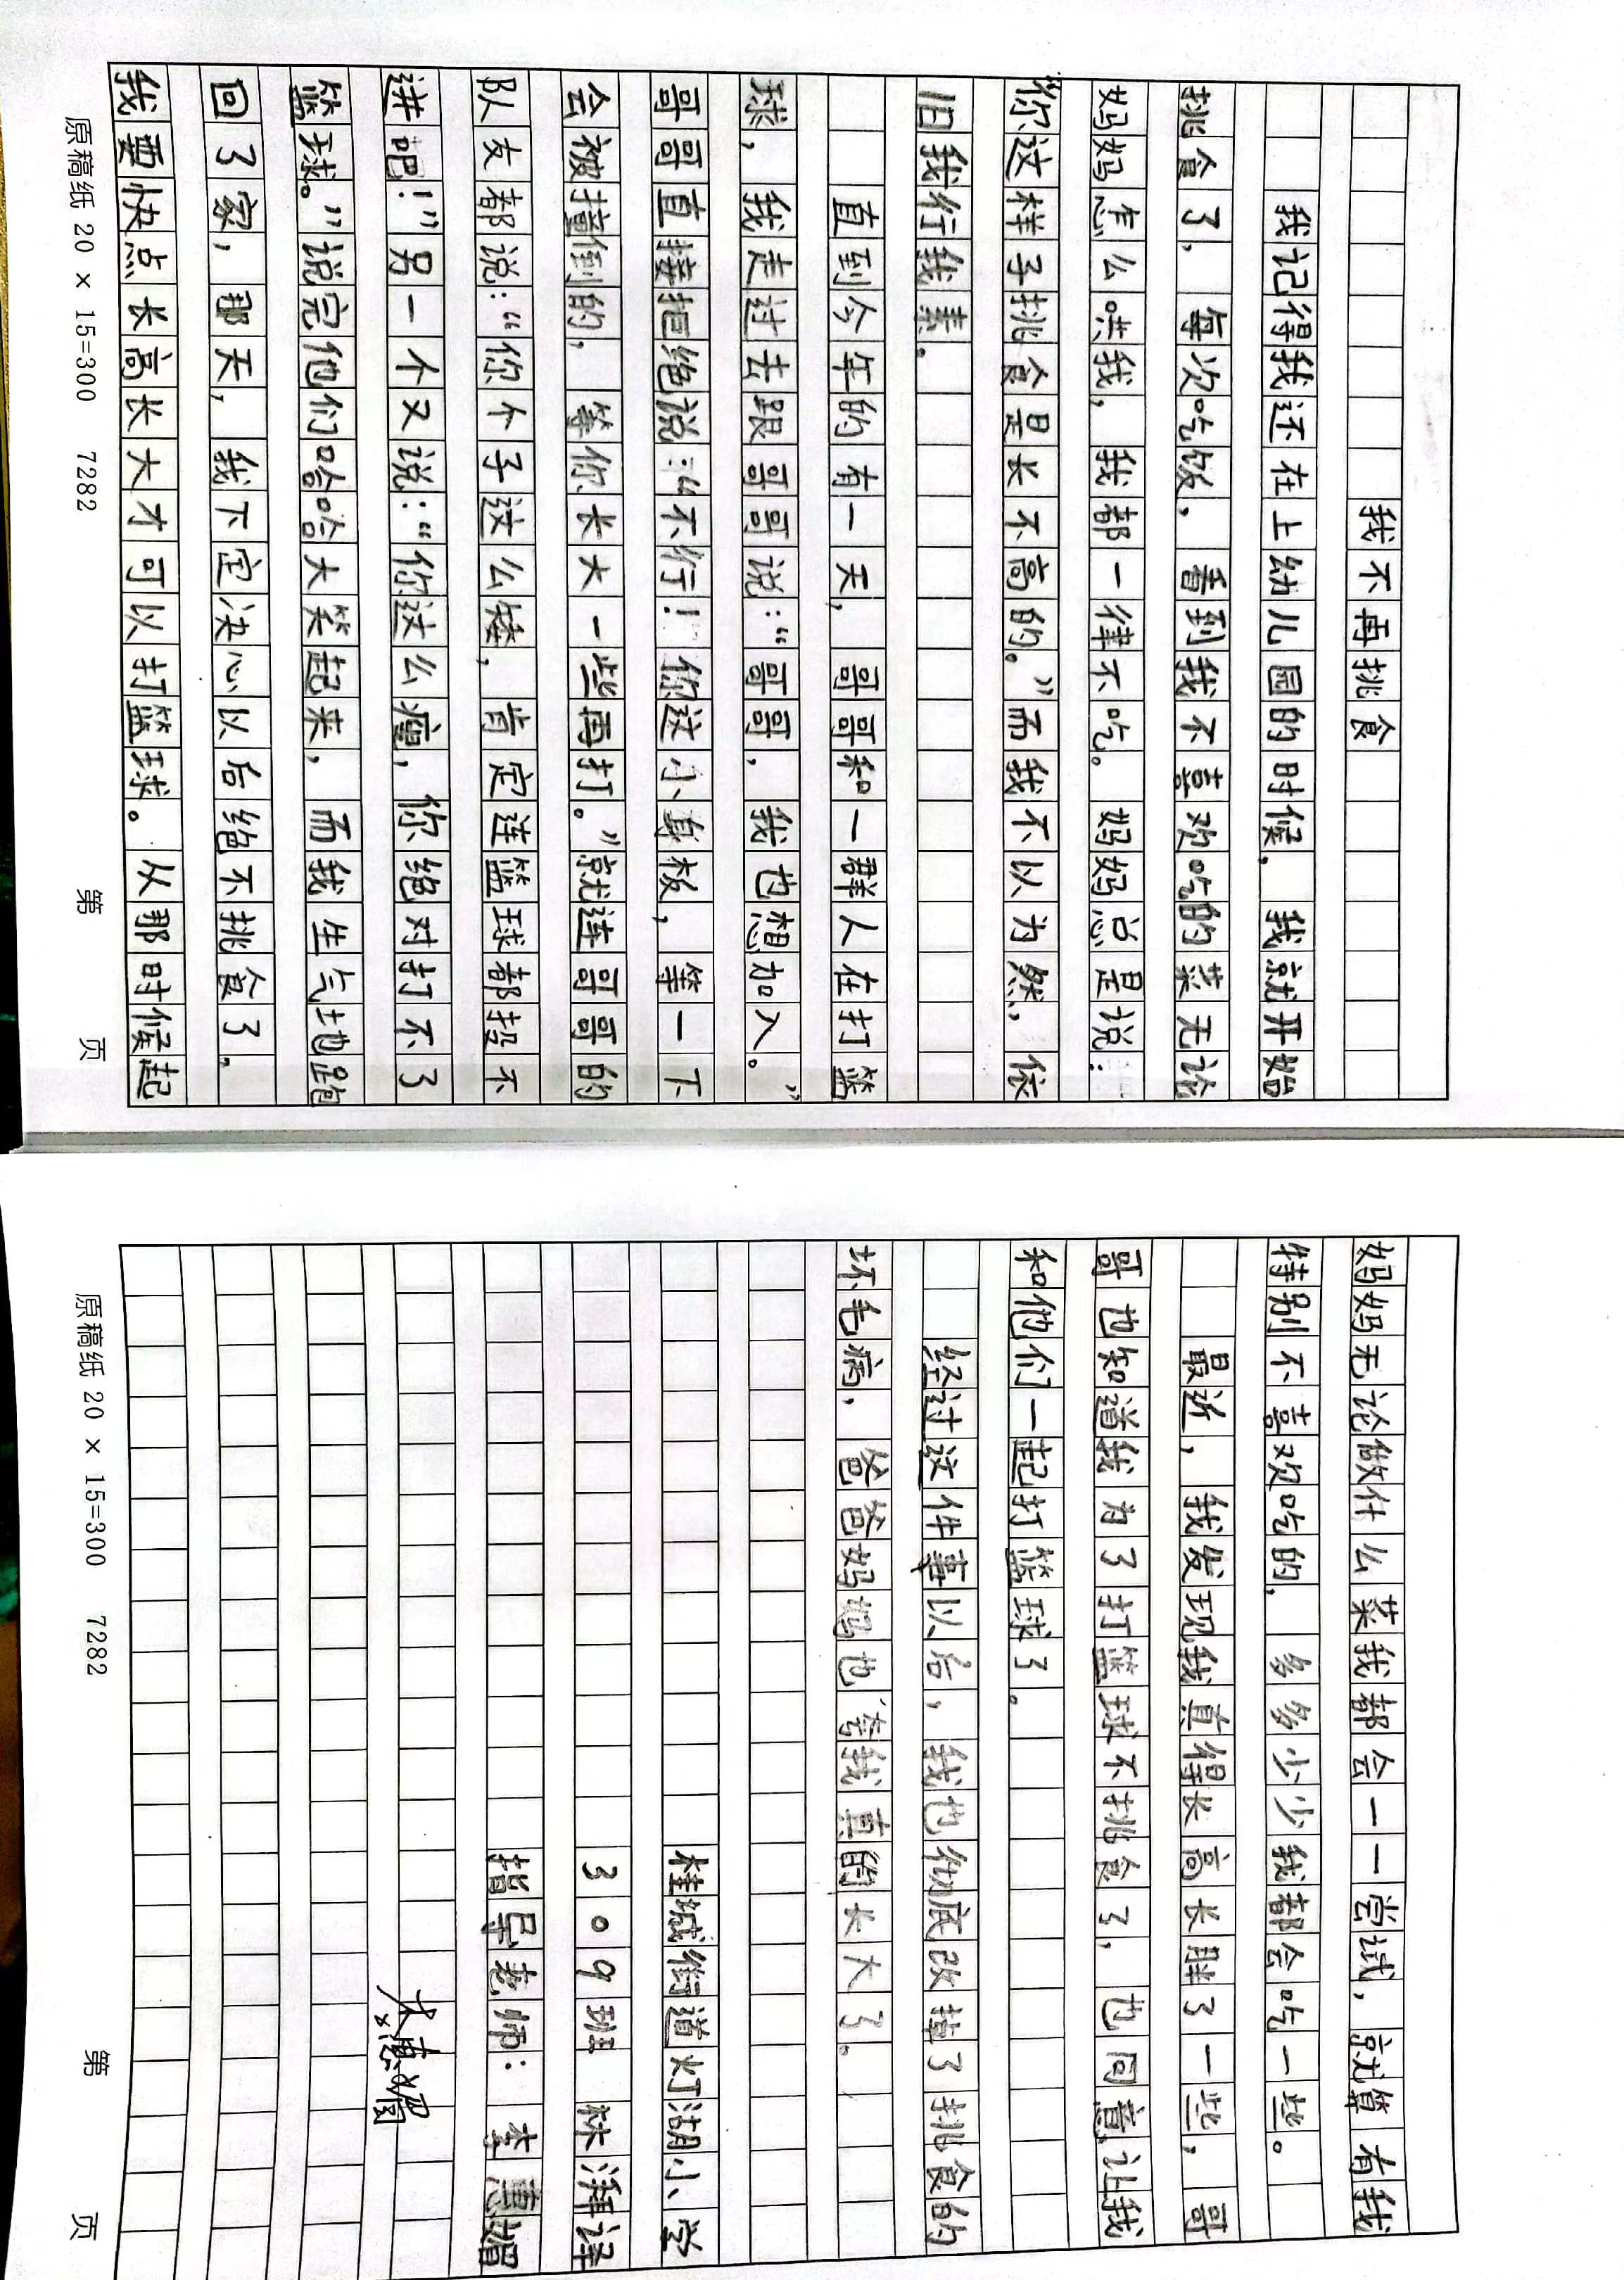 我不再挑食
我记得我还在上幼儿园的时候，我就开始
挑食了，每次吃饭，看到我不喜欢吃的菜无论
妈妈怎么哄我，我都一律不吃。妈妈总是说：
“你这样子挑食是长不高的。”而我不以为然，依
旧我行我素。
直到今年的有一天，哥哥和一群人在打篮
球，我走过去跟哥哥说：“哥哥，我也想加入。”
哥哥直接拒绝说：“不行！你这小身板，等一下
会被撞倒的，等你长大一些再打。”就连哥哥的
队友都说：“你个子这么矮，肯定连篮球都投不
进吧！”另一个又说：“你这么瘦，你绝对打不了
篮球。”说完他们哈哈大笑起来，而我生气地跑
回了家，那天，我下定决心以后绝不挑食了。
我要快点长高长大才可以打篮球。从那时候起
原稿纸 20 × 15=300 7282 第 页
妈妈无论做什么菜我都会一一尝试，就算有我
特别不喜欢吃的，多多少少我都会吃一些。
最近，我发现我真得长高长胖了一些，哥
哥也知道我为了打篮球不挑食了，也同意让我
和他们一起打篮球了。
经过这件事以后，我也彻底改掉了挑食的
坏毛病，爸爸妈妈也夸我真的长大了。
桂城街道灯湖小学
309班 林湃译
指导老师：李惠媚
原稿纸 20 × 15=300 7282 第 页